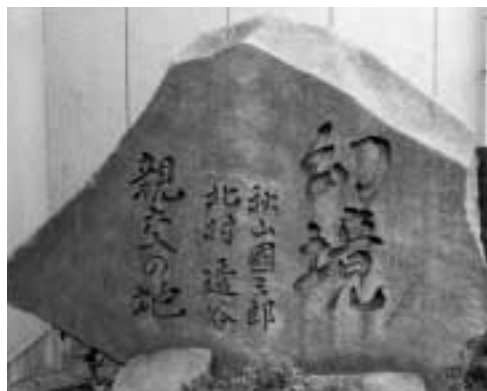 幻境
秋山國三郎
北村透谷
親交の地